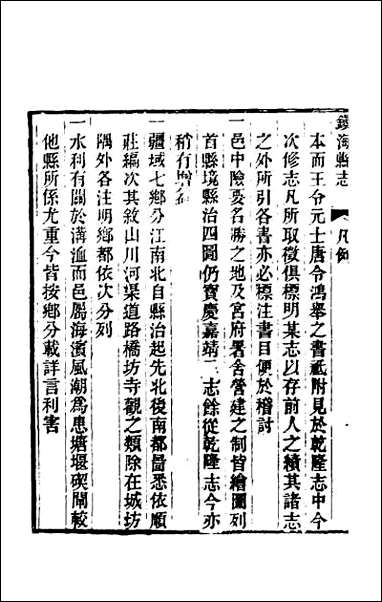 鎮海縣志 凡例
本而王令元士唐令鴻舉之書祗附見於乾隆志中今
次修志凡所取徵俱標明某志以存前人之績其諸志
之外所引各書亦必標注書目便於稽討
一邑中險要名勝之地及宮府署舍營建之制皆繪圖列
首縣境縣治四圖仍寶慶嘉靖二志餘從乾隆志今亦
稍有增
一疆域七鄉分江南北自縣治起先北後南都啚悉依順
莊編次其敘山川河渠道路橋坊寺觀之類除在城坊
隅外各注明鄉都依次分列
一水利有關於溝洫而邑腸海濱風潮為患塘堰碶閘較
他縣所係尤重今皆按鄉分載詳言利害